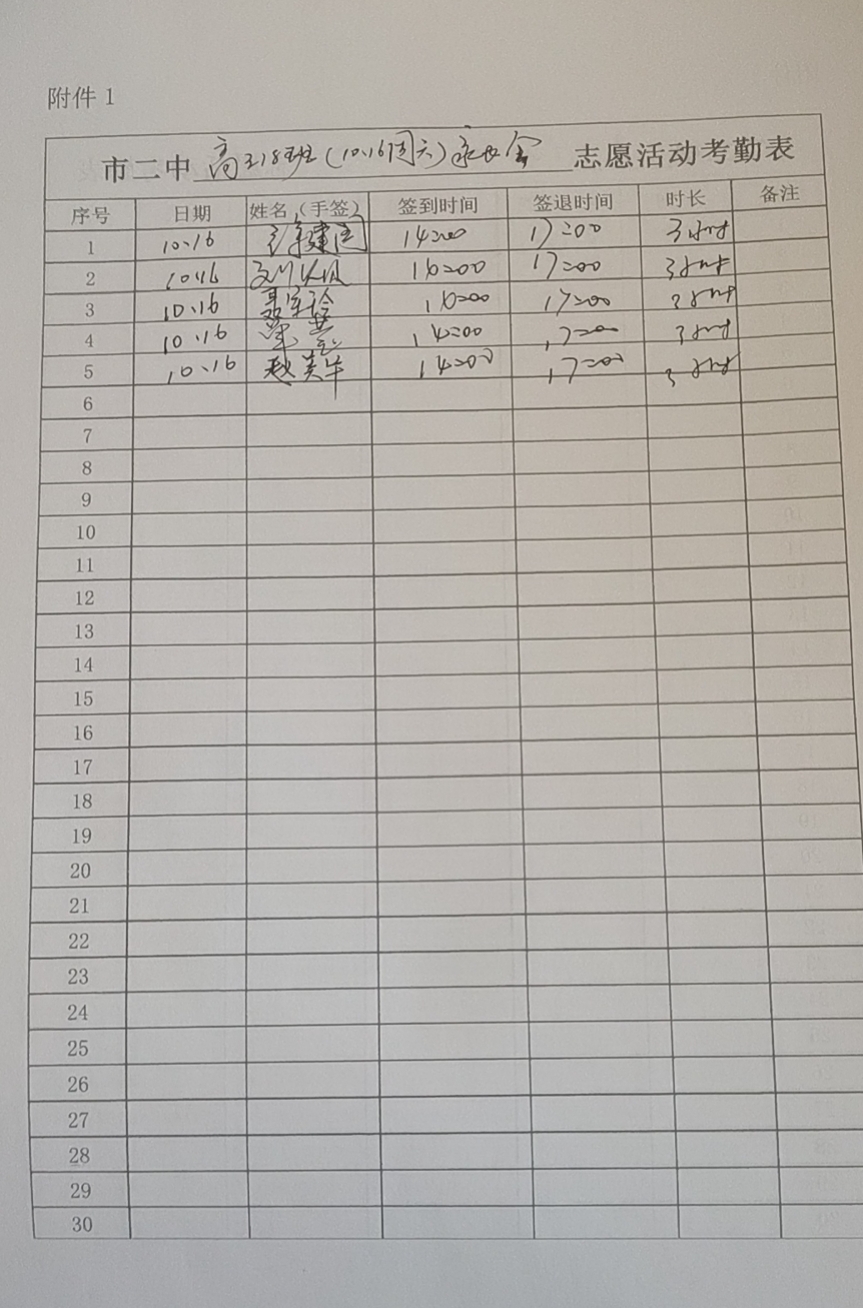 附件 1
市二中 高三18班(10.16周六)家长会 志愿活动考勤表
序号 日期 姓名(手签) 签到时间 签退时间 时长 备注
1 10.16 建国 14:00 17:00 3小时
2 10.16 14:00 17:00 3小时
3 10.16 14:00 17:00 3小时
4 10.16 14:00 17:00 3小时
5 10.16 赵美华 14:00 17:00 3小时
6
7
8
9
10
11
12
13
14
15
16
17
18
19
20
21
22
23
24
25
26
27
28
29
30